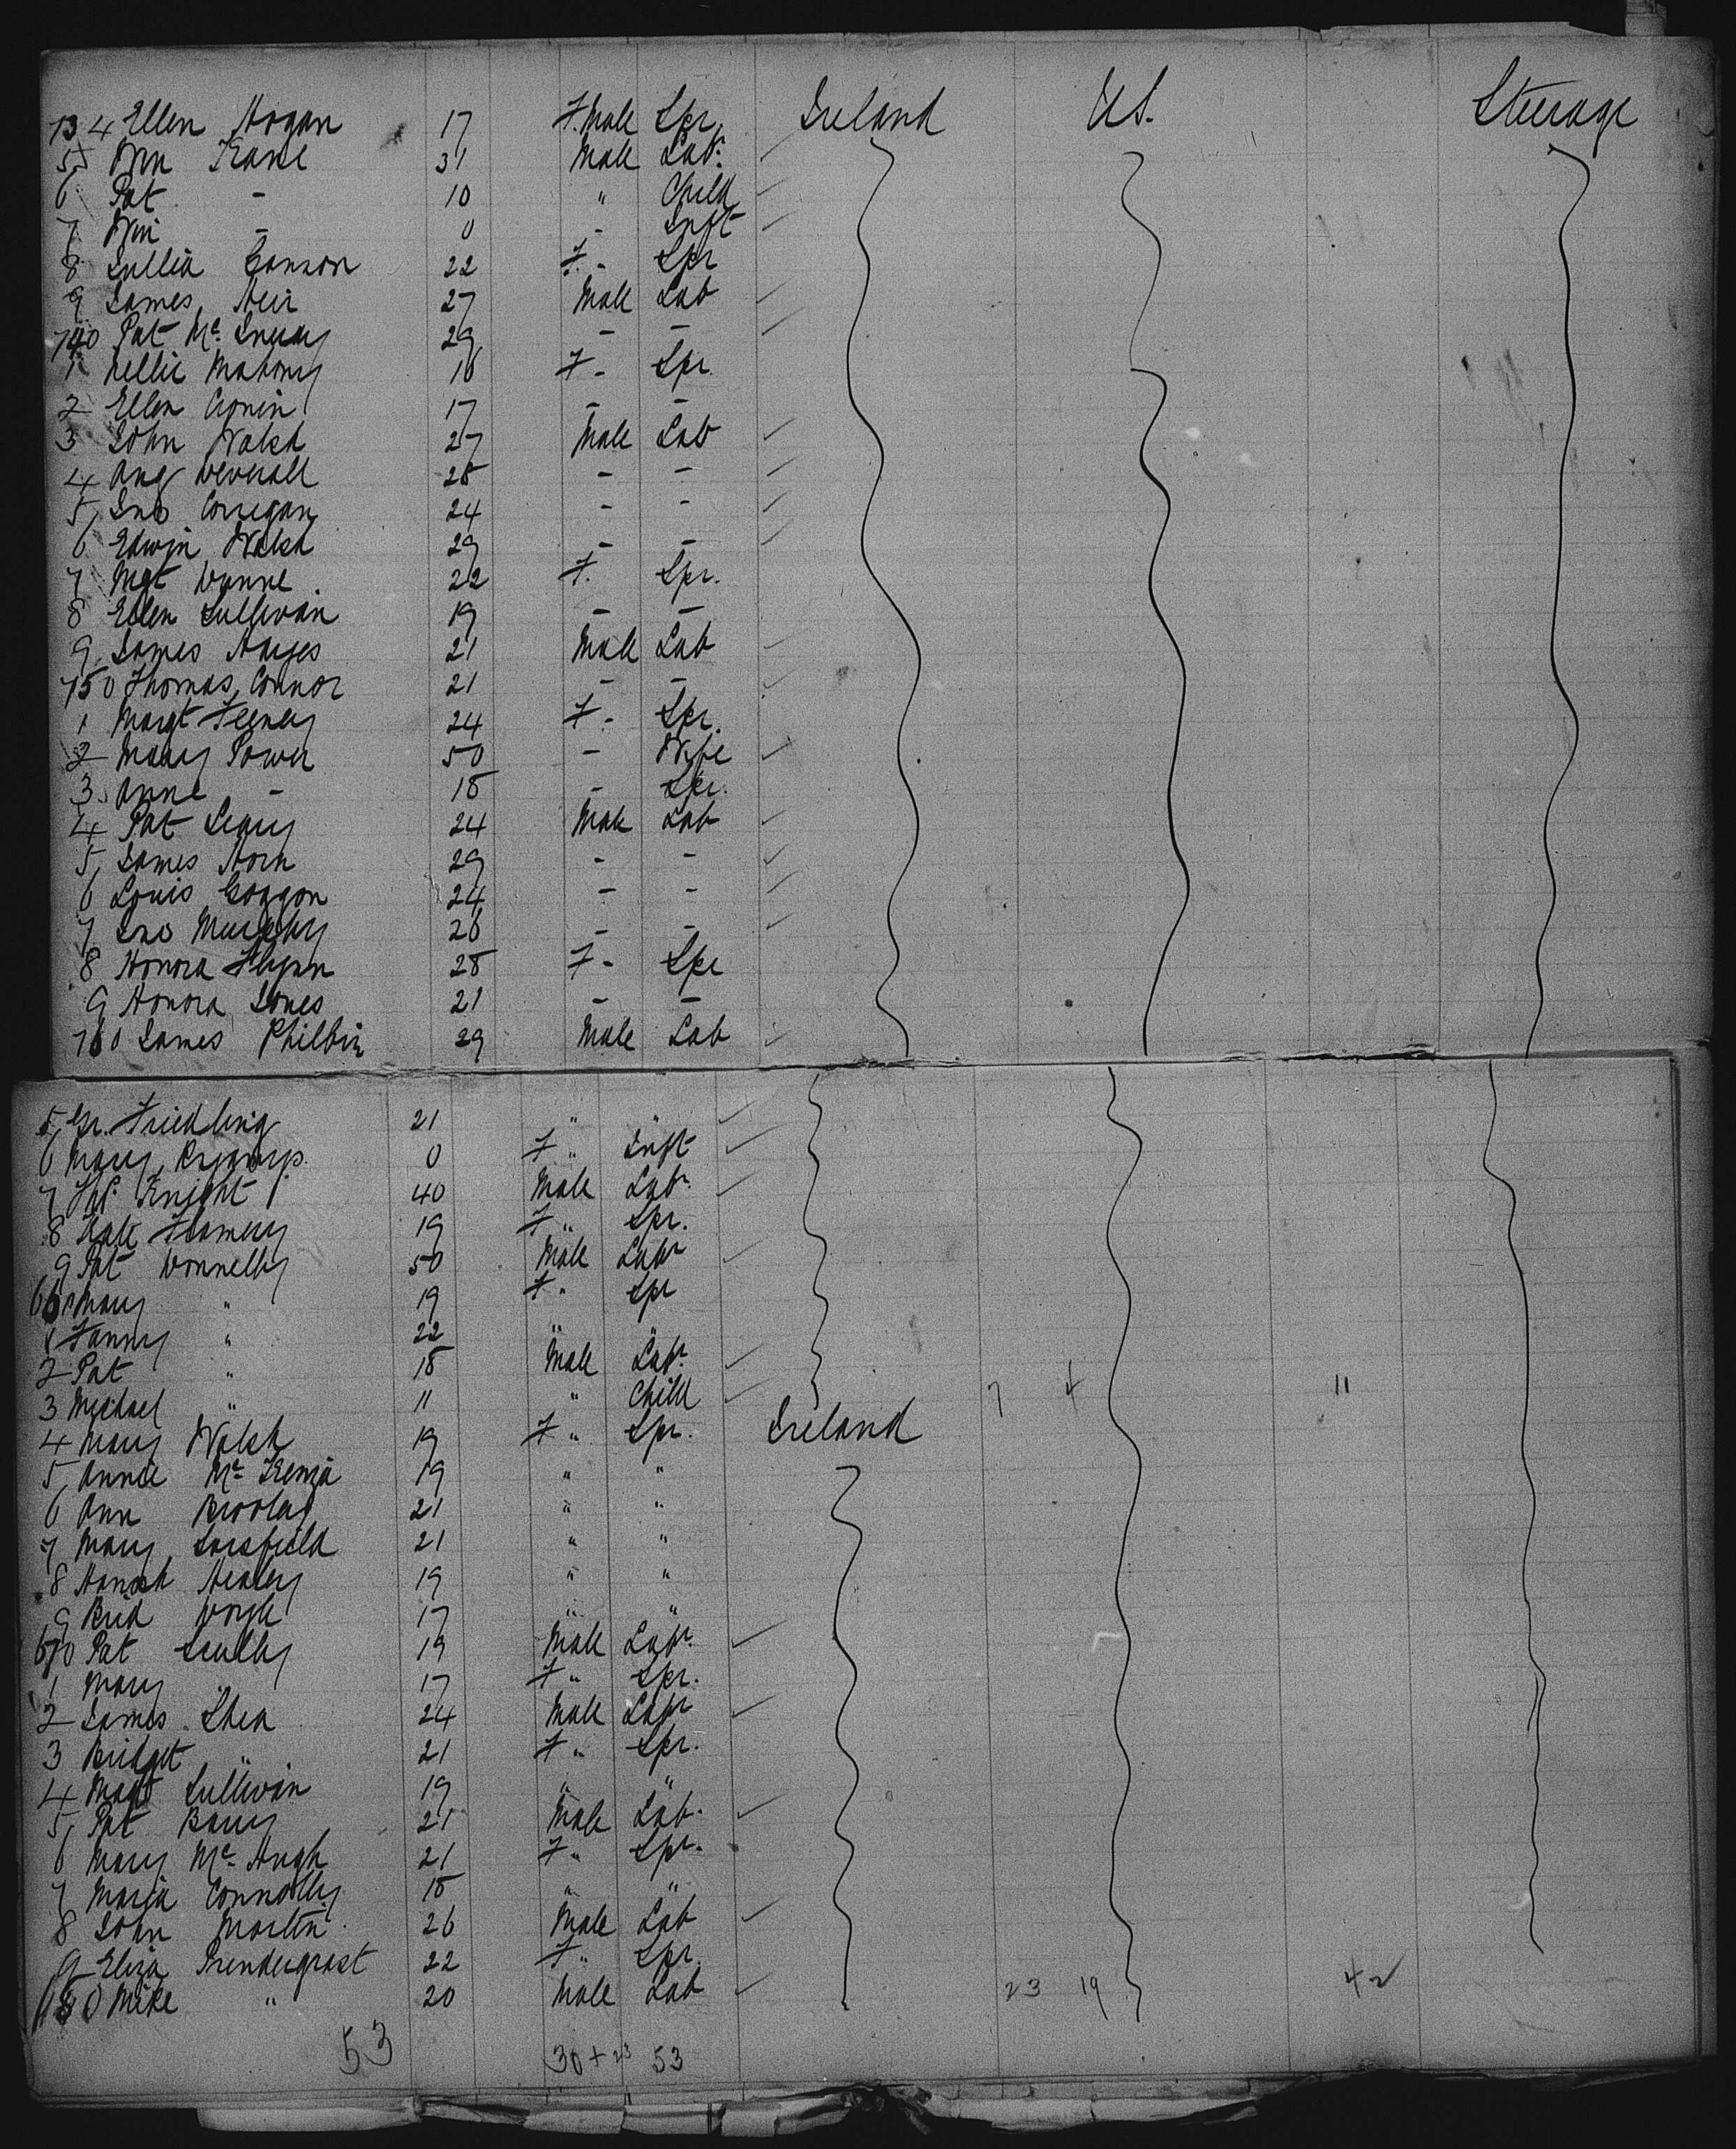 734 Ellen Hogan 17 F.Male Spr. Ireland U.S. Steerage
5 Wm Kane 31 Male Lab.
6 Pat - 10 " Child
7 Wm - 0 - Inft
8 Sullia 22 F. - Spr
9 James Weir 27 Male Lab
740 Pat Mc 29 - -
1 Nellie Mahony 18 F - Spr.
2 Ellen Cronin 17 - -
3 John Walsh 27 Male Lab
4 Aug Deverall 28 - -
5 Jno Corrigan 24 - -
6 Edwin Walsh 29 - -
7 Mgt Dunne 22 F. Spr.
8 Ellen Sullivan 19 - -
9 James Hayes 21 Male Lab
750 Thomas Connor 21 - -
1 Margt Feeney 24 F - Spr.
2 Mary Power 50 - Wife
3 Anne - 18 - Spr.
4 Pat Leary 24 Male Lab
5 James Horn 29 - -
6 Louis Goggon 24 - -
7 Jno Murphy 26 - -
8 Honora Flynn 28 F - Spr
9 Honora Jones 21 - -
760 James Philbin 29 Male Lab
5 Friedling 21 " "
6 Mary 0 F " Inft
7 Ths. Knight 40 Male Lab.
8 Kate 19 F " Spr.
9 Pat Donnelly 50 Male Labr
660 Mary " 19 F " Spr
1 Fanny " 22 " "
2 Pat " 18 Male Lab.
3 Michael " 11 " Child 7 4 11
4 Mary Walsh 19 F " Spr. Ireland
5 Annie Mc Kenna 19 " "
6 Ann 21 " "
7 Mary Sarsfield 21 " "
8 Honah Healy 19 " "
9 Brid Doyle 17 " "
670 Pat Scully 19 Male Labr.
1 Mary " 17 F " Spr.
2 James Shea 24 Male Labr
3 Bridget " 21 F " Spr.
4 Magt Sullivan 19 " "
5 Pat Barry 21 Male Lab.
6 Mary Mc Hugh 21 F " Spr.
7 Maria Connolly 18 " "
8 John Martin 26 Male Lab
9 Eliza Prendergrast 22 F " Spr.
680 Mike " 20 Male Lab 23 19 42
53 30 + 23 53